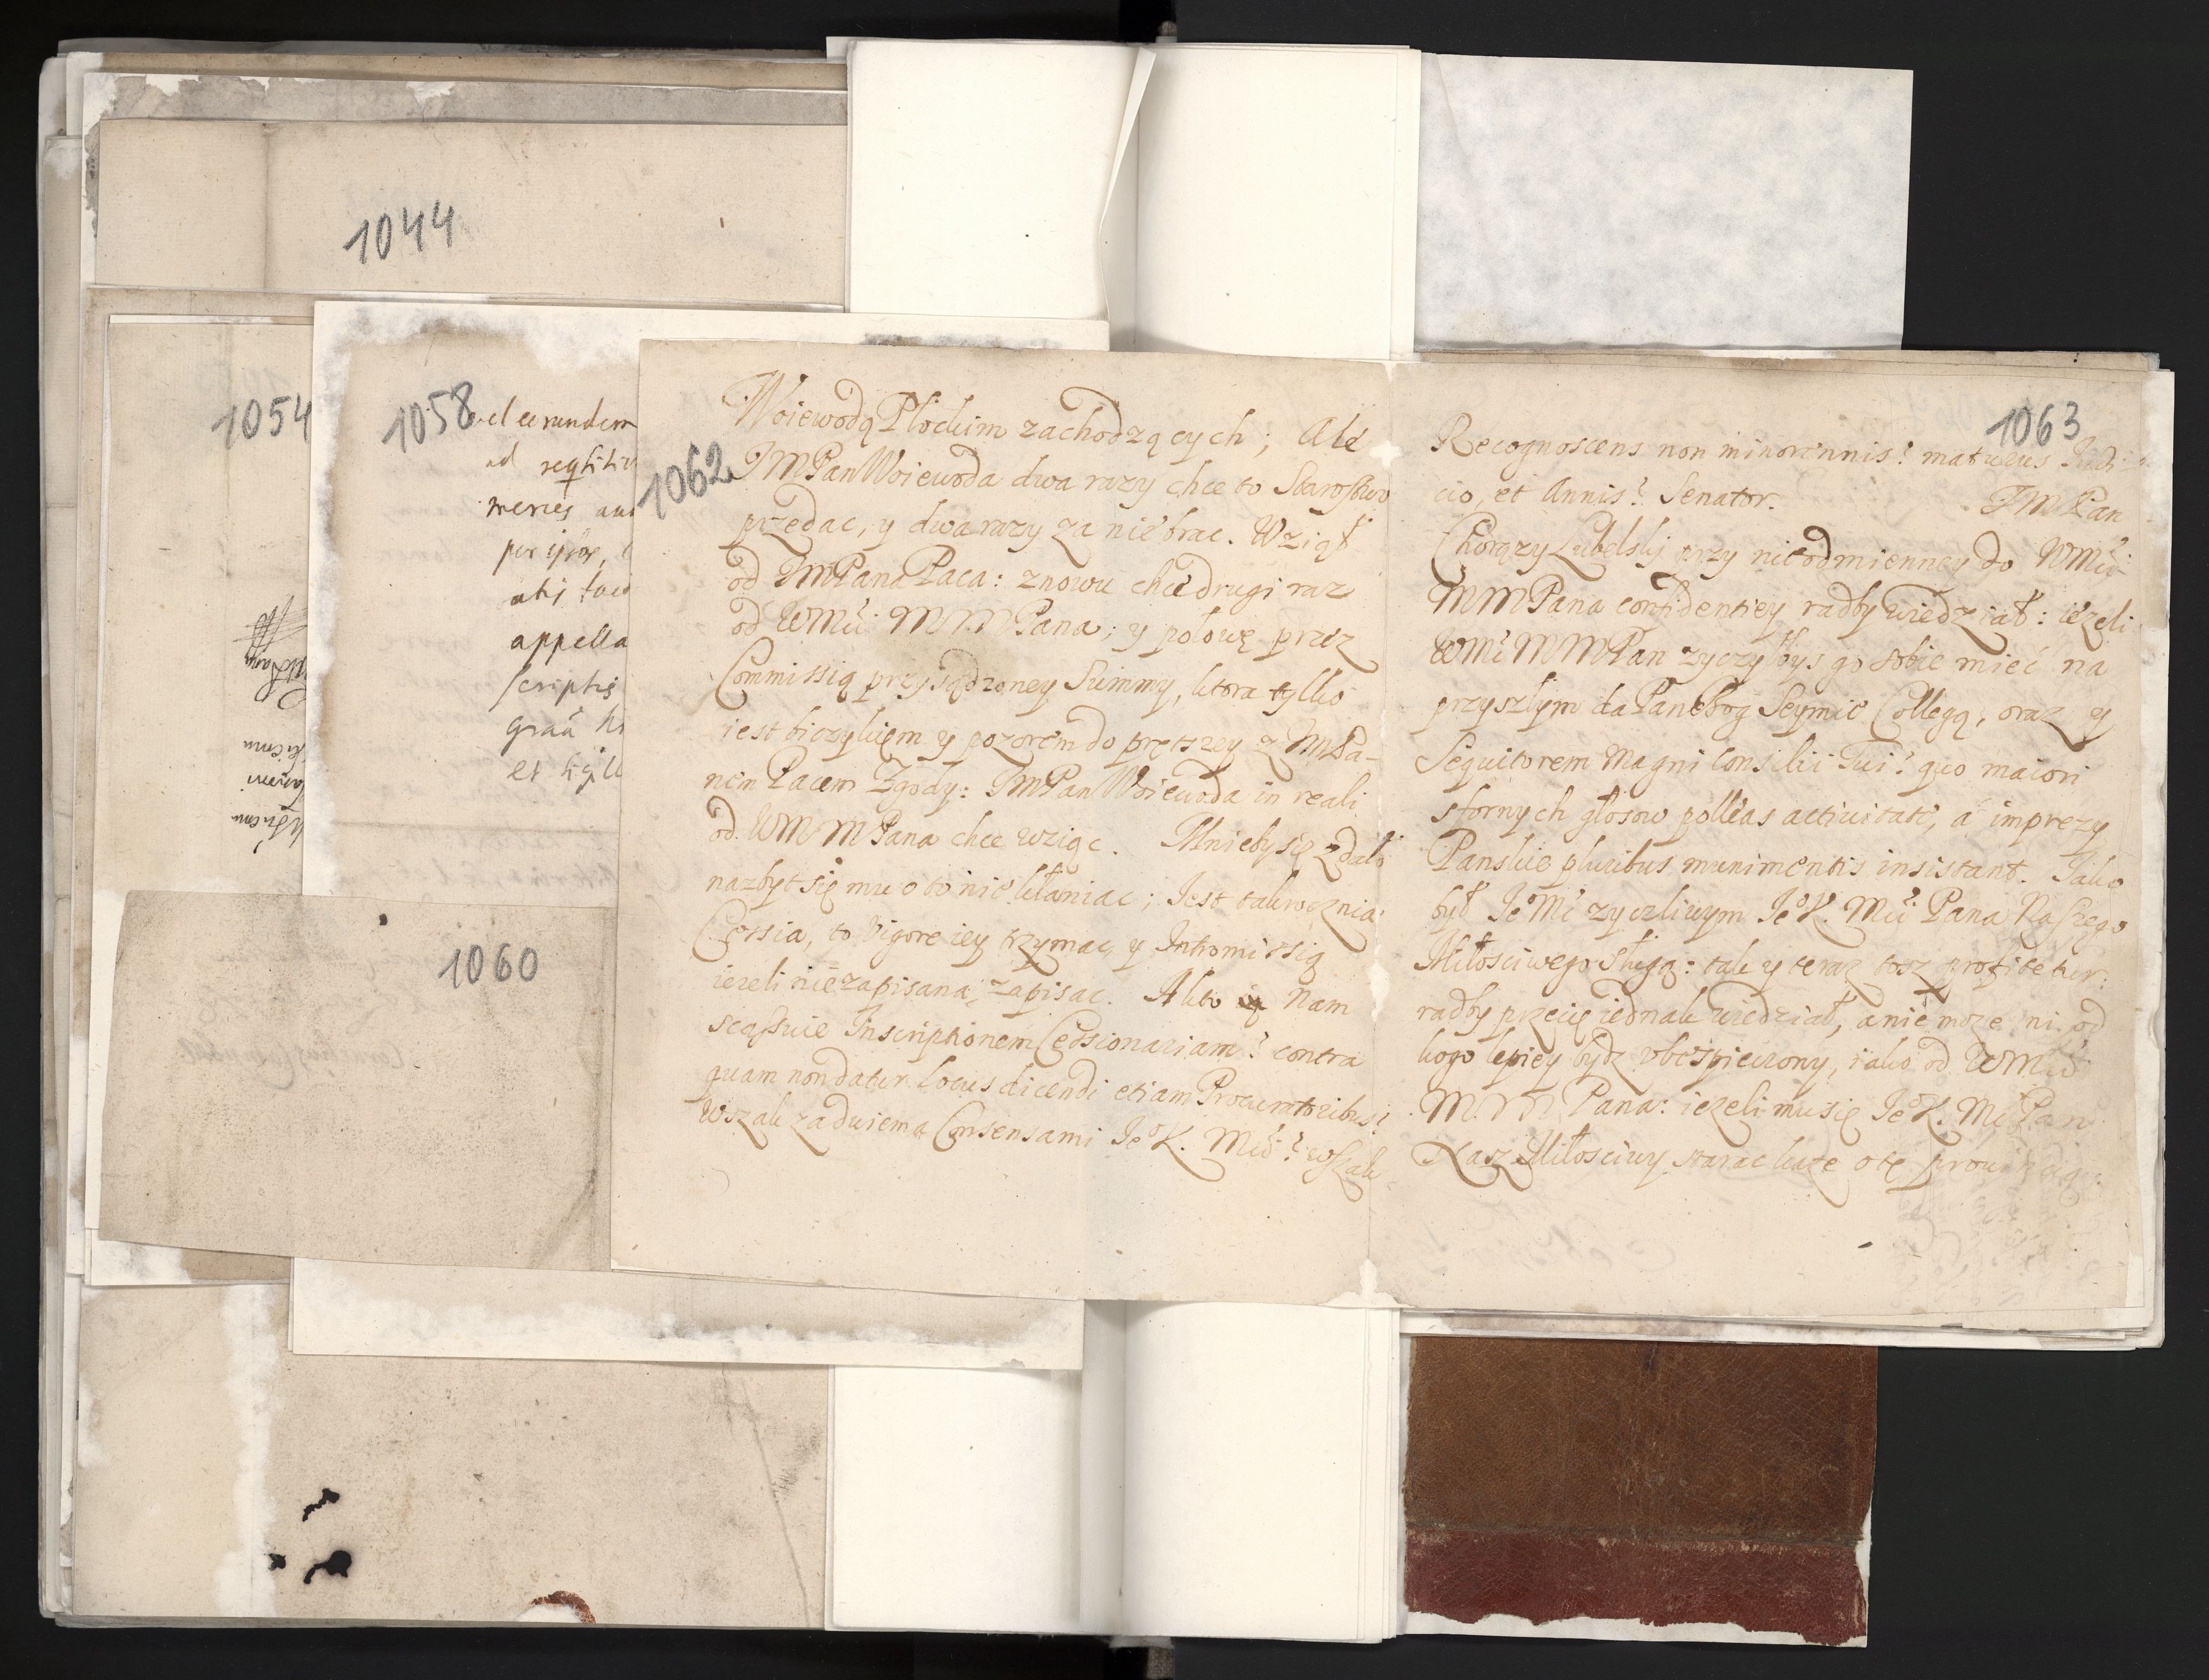 1044
1054
1058
el eerundem
ad
meries
per
appella
scriptis
et
1060
1062
Woiewodą Płockim zachodzących; Ale
JMPan Woiewoda dwa razy chce to Starostwo
przedac, y dwa razy za nie brac. Wziął
od JmPana Paca: znowu chce drugi raz
od WMć MM Pana; y połowę przez
Commissią przysądzoney Summy, ktora tylko
iest biczykiem y pozorem do prętszey z JmPa-
nem Pacem Zgody: JmPan Woiewoda in reali
od WMMPana chce wziąc. Mnieby się zdało
nazbyt się mu o to nie kłaniac; Jest takroczna
Cessia, to Vigore iey trzymac, y Intromissią
iezeli niezapisana, zapisac. A kto Nam
scassuie Inscriptionem Cessionariam? contra
quam non datur locus dicendi etiam Procuratoribus?
Wszak za dwiema Consensami Jeo K. Mći? wszak
1063
Recognoscens non minorennis? maturus Judi
cio, et Annis? Senator. JMPan
Chorązy Lubelsky przy nieodmienney do WMći
MMPana confidentiey radby wiedział: iezeli
WMć MMPan zyczyłbys go sobie mieć na
przyszłym da Pan Bog Seymie Collegą, oraz y
Sequitorem Magni Consilii Tui? quo maiori
sfornych głosow polleas activitate, á imprezy
Panskie pluribus munimentis insistant. Jako
był JeMć zyczliwym Jeo K. Mći Pana Naszego
Miłosciwego sługą: tak y teraz tosz profitetur:
radby przecię iednak wiedział, a nie moze ni od
kogo lepiey bydz ubespieczony, iako od WMći
M.M Pana: iezeli mu się Jeo K. Mć Pan
Nasz Miłosciwy starac kaze o tę